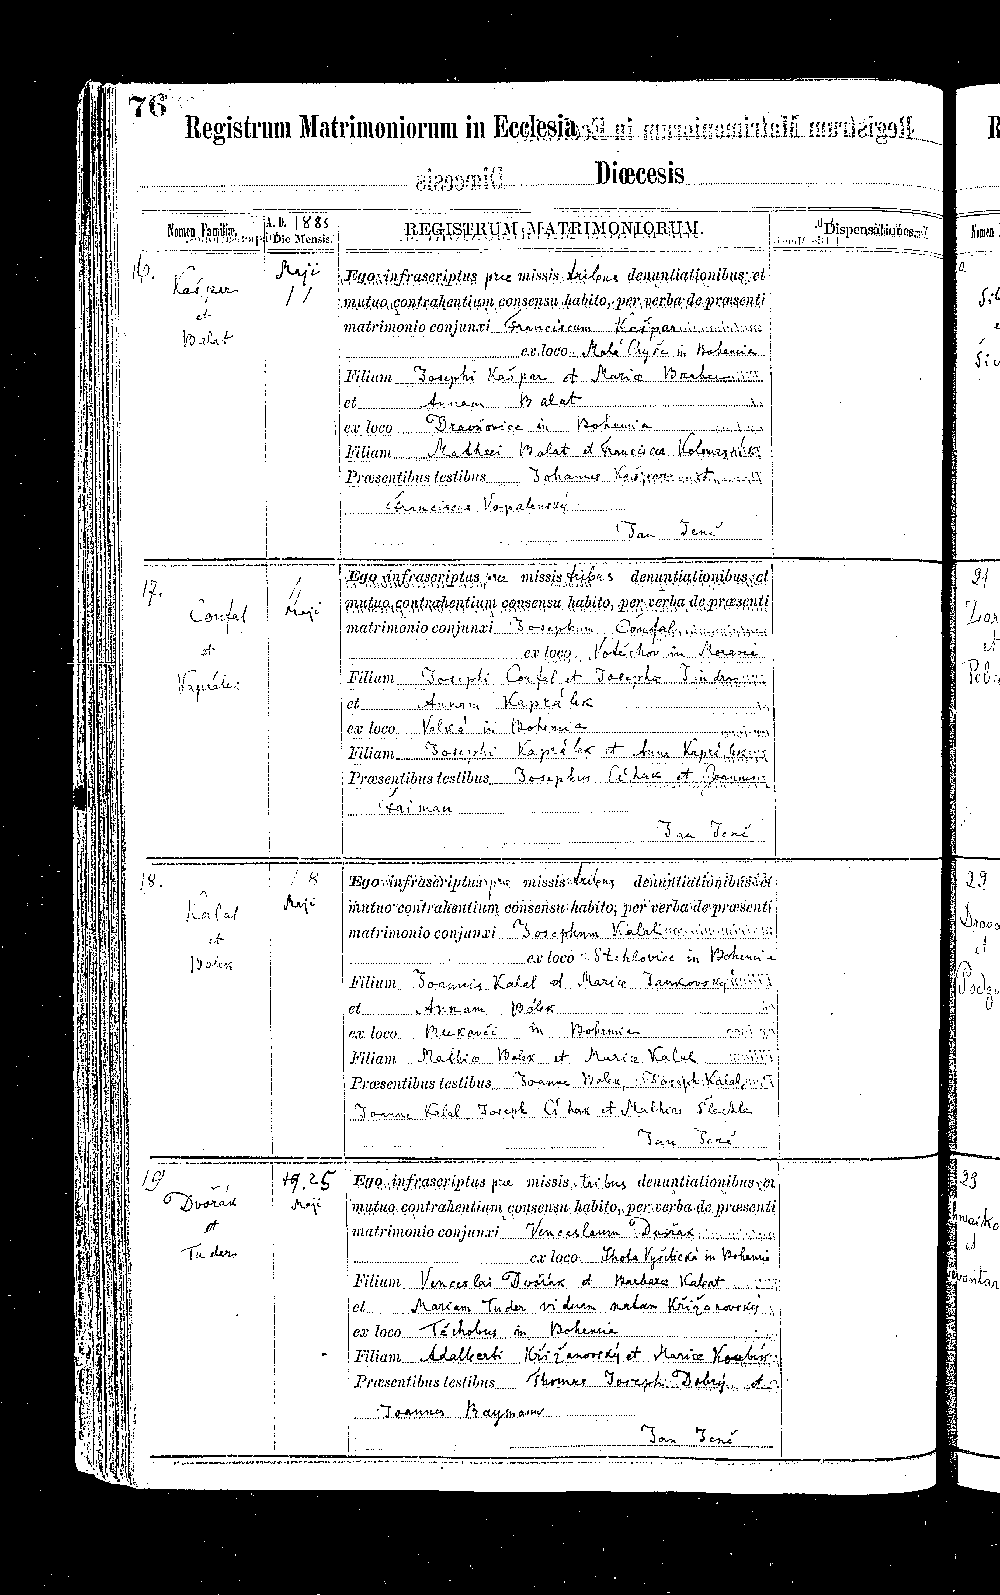 76
Registrum Matrimoniorum in Ecclesia
Diœcesis
Nomen Familiæ.
A. D. 1885
Die Mensis.
REGISTRUM MATRIMONIORUM.
Dispensationes.
16.
Kašpar
et
Balat
Maji
11
Ego infrascriptus præ missis tribus denuntiationibus et
mutuo contrahentium consensu habito, per verba de præsenti
matrimonio conjunxi Franciscum Kašpar
ex loco Malá Chyše in Bohemia
Filium Josephi Kašpar et Mariæ
et Annam Balat
ex loco in Bohemia
Filiam Mathæi Balat et Francisca
Præsentibus testibus Johannes Kašpar et
Franciscus
Jan Jení
17.
Confal
et
Kaprálek
11
Maji
Ego infrascriptus præ missis tribus denuntiationibus et
mutuo contrahentium consensu habito, per verba de præsenti
matrimonio conjunxi Josephum Confal
ex loco in Moravia
Filium Josephi Confal et Josepha
et Annam Kaprálek
ex loco Velká in Bohemia
Filiam Josephi Kaprálek et Anna Kaprálek
Præsentibus testibus Josephus Čihak et Joannes
Jan Jení
18.
Kalal
et
Bolek
18
Maji
Ego infrascriptus præ missis tribus denuntiationibus et
mutuo contrahentium consensu habito, per verba de præsenti
matrimonio conjunxi Josephum Kalal
ex loco Stehlovice in Bohemia
Filium Joannis Kalal et Mariæ Jankovský
et Annam Bolek
ex loco in Bohemia
Filiam Mathiæ Bolek et Mariæ Kalal
Præsentibus testibus Joanne Bolek, Joseph Kalal,
Joanne Kalal Joseph Čihak et Mathias
Jan Jení
19
Dvořák
et
Tuder
19. 25
Maji
Ego infrascriptus præ missis tribus denuntiationibus et
mutuo contrahentium consensu habito, per verba de præsenti
matrimonio conjunxi Venceslaum Dvořák
ex loco Lhota in Bohemia
Filium Venceslai Dvořák et Barbara Kabat
et Mariam Tuder viduam natam Křižanovský
ex loco Těchobus in Bohemia
Filiam Adalberti Křižanovský et Mariæ
Præsentibus testibus Thomas Joseph Dobrý et
Joannes Baymann
Jan Jení
21
et
29
et
23
et